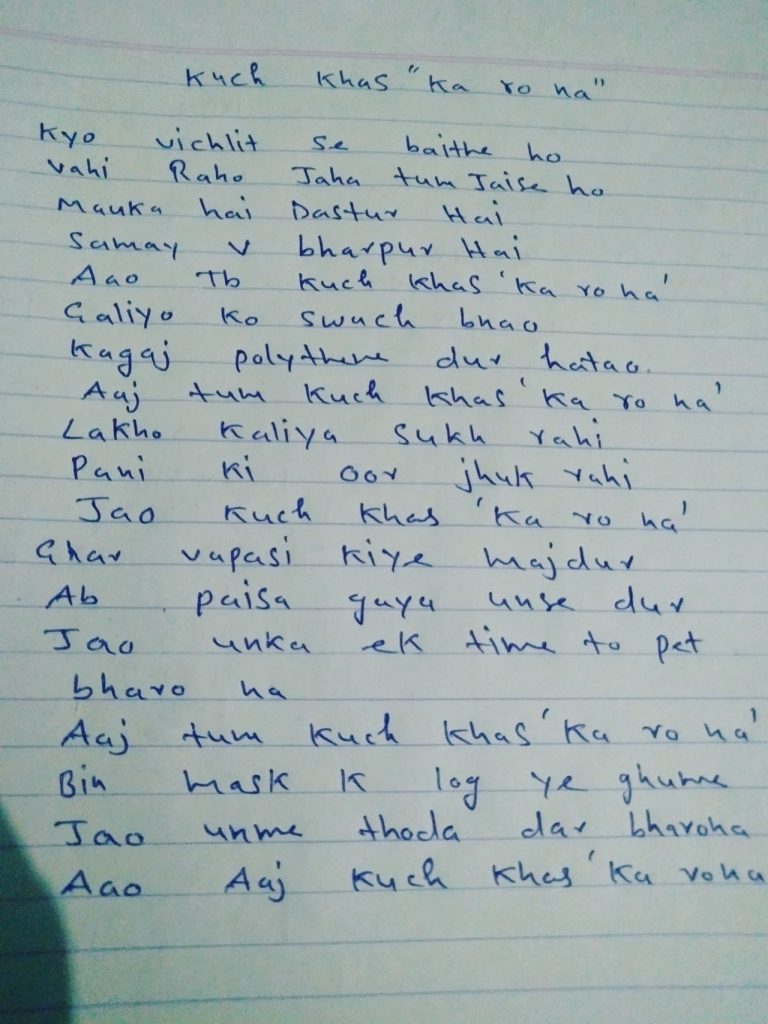 Kuch khas "Ka ro na"
Kyo vichlit se baithe ho
vahi Raho Jaha tum Jaise ho
Mauka hai Dastur Hai
Samay v bharpur Hai
Aao Tb kuch khas 'Ka ro na'
Galiyo ko swach bnao
Kagaj polythene dur hatao.
Aaj tum kuch khas 'Ka ro na'
Lakho kaliya sukh rahi
Pani ki oor jhuk rahi
Jao kuch khas 'Ka ro na'
Ghar vapasi kiye majdur
Ab paisa gaya unse dur
Jao unka ek time to pet
bharo na
Aaj tum kuch khas 'Ka ro na'
Bin mask k log ye ghume
Jao unme thoda dar bharona
Aao Aaj kuch khas 'Ka rona